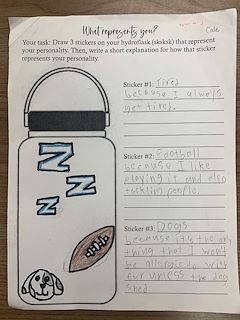 What represents you?
Cale
Your task: Draw 3 stickers on your hydroflask (sksksk) that represent
your personality. Then, write a short explanation for how that sticker
represents your personality.
Sticker #1: Tired
because I always
get tired.
Sticker #2: Football
because I like
playing it and also
tackling people.
Sticker #3: Dogs
because it's the only
thing that I wont
be allergic to with
fur unless the dog
shed
Z
Z
Z
Z